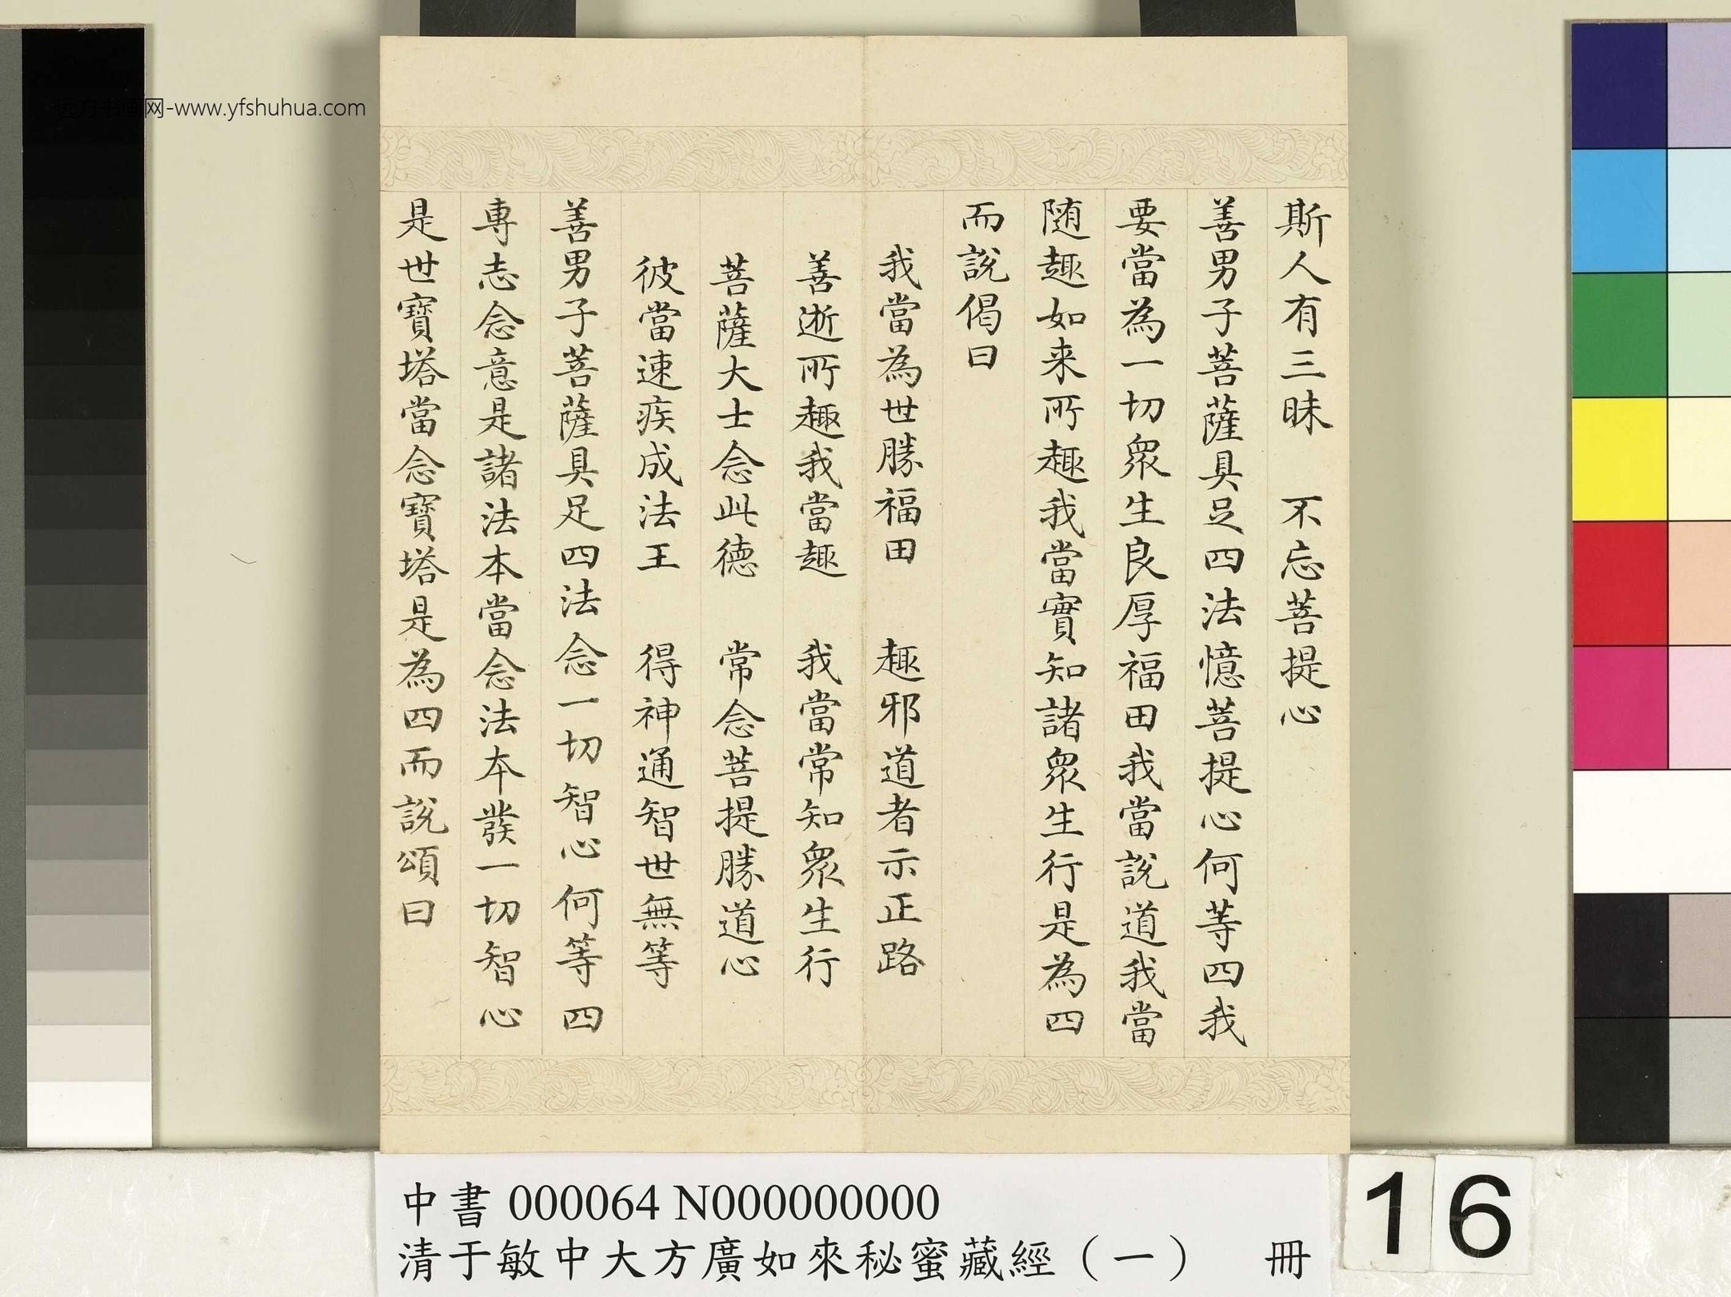 斯人有三昧　不忘菩提心
善男子菩薩具足四法憶菩提心何等四我
要當為一切眾生良厚福田我當說道我當
随趣如来所趣我當實知諸眾生行是為四
而說偈曰
我當為世勝福田　趣邪道者示正路
善逝所趣我當趣　我當常知眾生行
菩薩大士念此德　常念菩提勝道心
彼當速疾成法王　得神通智世無等
善男子菩薩具足四法念一切智心何等四
專志念意是諸法本當念法本發一切智心
是世寶塔當念寶塔是為四而說頌曰
网-www.yfshuhua.com
中書 000064 N000000000
清于敏中大方廣如來秘蜜藏經（一）　冊
16